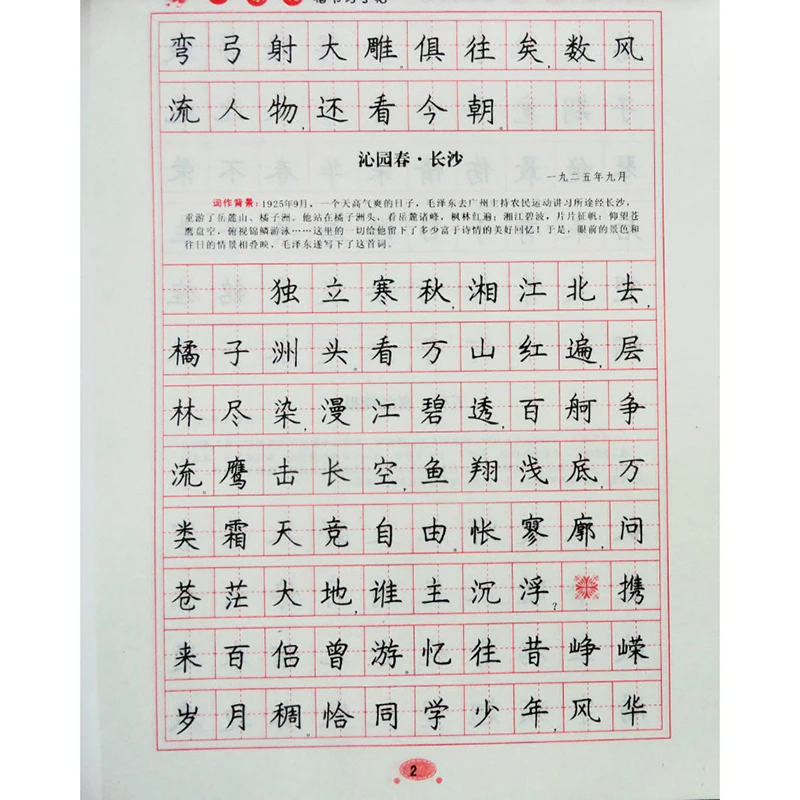 弯弓射大雕。俱往矣,数风
流人物,还看今朝。
沁园春·长沙
一九二五年九月
词作背景:1925年9月,一个天高气爽的日子,毛泽东去广州主持农民运动讲习所途经长沙,
重游了岳麓山、橘子洲。他站在橘子洲头,看岳麓诸峰,枫林红遍;湘江碧波,片片征帆;仰望苍
鹰盘空,俯视锦鳞游泳……这里的一切给他留下了多少富于诗情的美好回忆!于是,眼前的景色和
往日的情景相叠映,毛泽东遂写下了这首词。
独立寒秋,湘江北去,
橘子洲头。看万山红遍,层
林尽染;漫江碧透,百舸争
流。鹰击长空,鱼翔浅底,万
类霜天竞自由。怅寥廓,问
苍茫大地,谁主沉浮? 携
来百侣曾游。忆往昔峥嵘
岁月稠。恰同学少年,风华
2